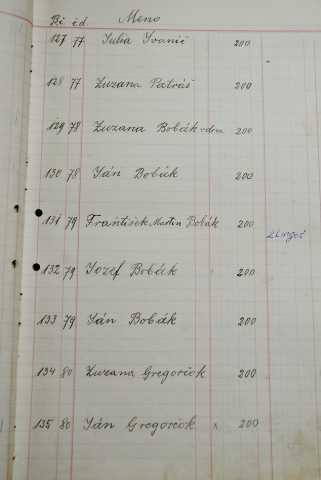 Bi čd. Meno
127 77 Julia Ivanič 200
128 77 Zuzana Patráš 200
129 78 Zuzana Bobák vdova 200
130 78 Ján Bobák 200
131 79 František Martin Bobák 200
132 79 Jozef Bobák 200
133 79 Ján Bobák 200
134 80 Zuzana Gregorčok 200
135 80 Ján Gregorčok x 200